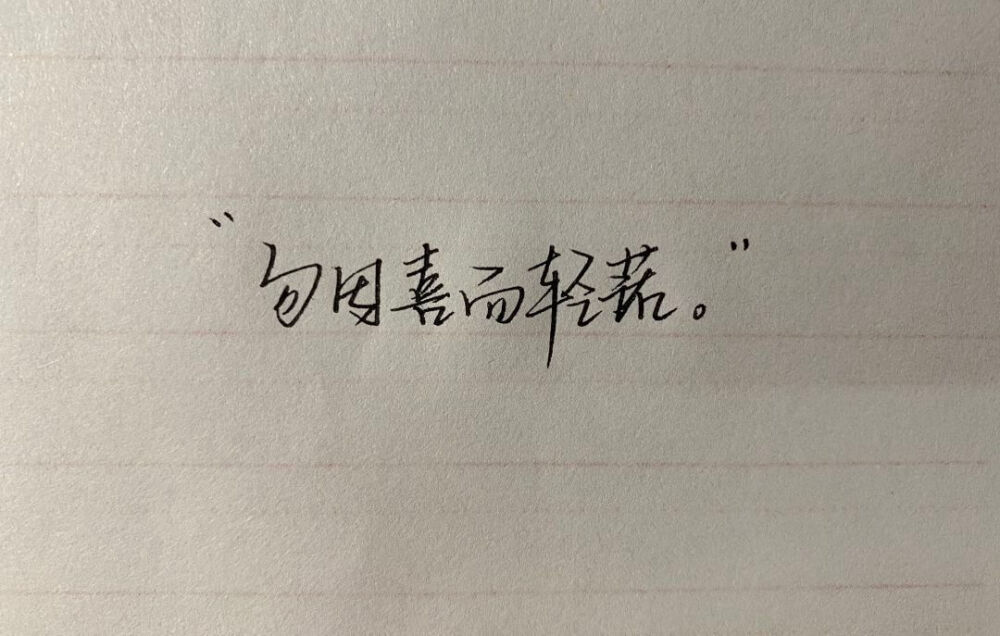 “勿因喜而轻诺。”